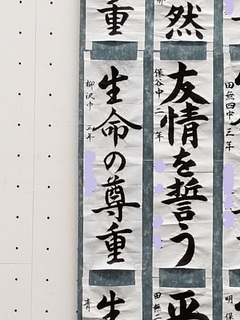 然
友情を誓う
保谷中
年
田無四中 三年
重
生命の尊重
柳沢中
三年
生
青
田無二
明保